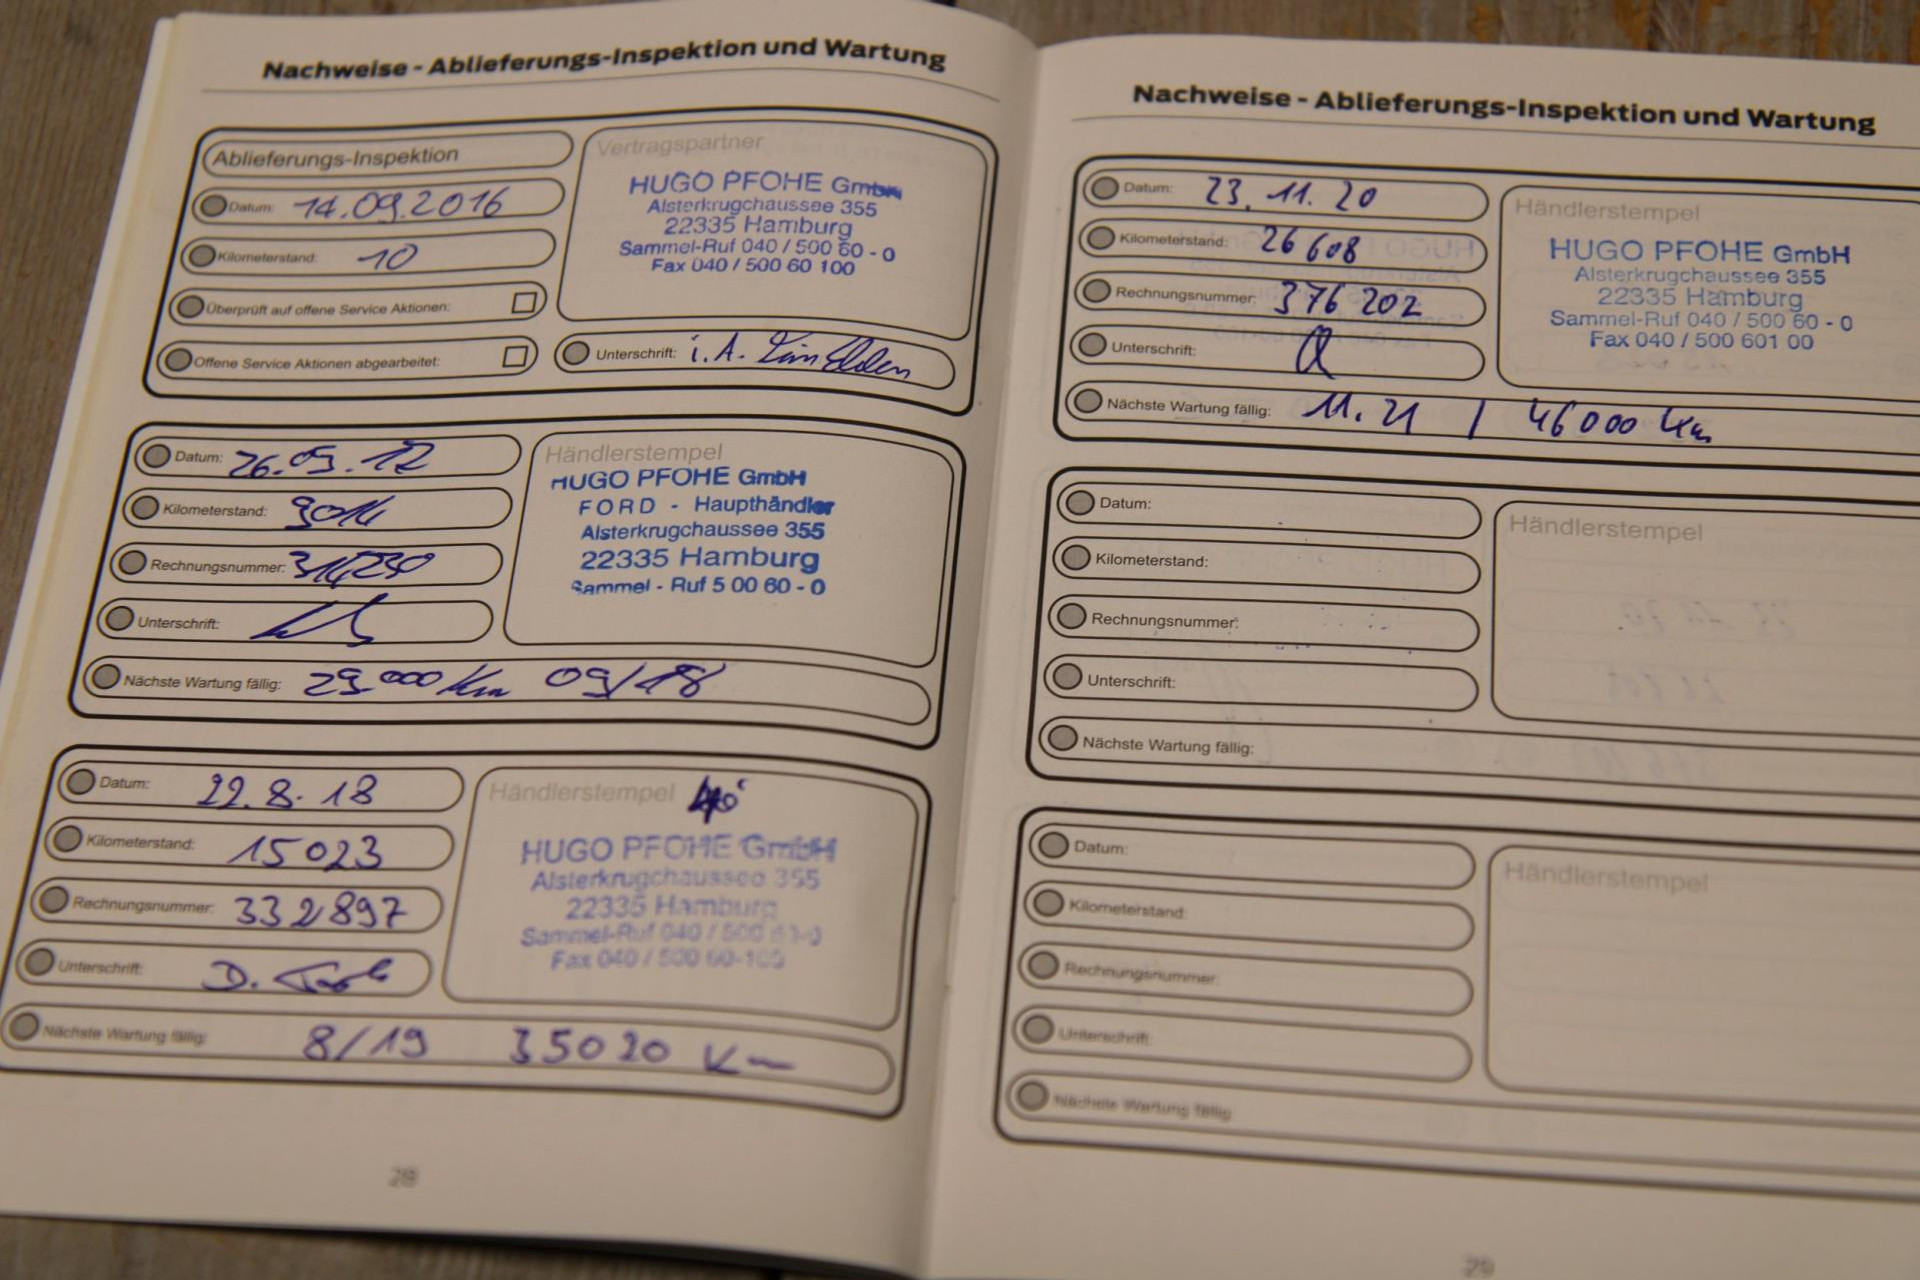 Nachweise - Ablieferungs-Inspektion und Wartung
Ablieferungs-Inspektion
Datum: 14.09.2016
Kilometerstand: 10
Überprüft auf offene Service Aktionen:
Offene Service Aktionen abgearbeitet:
Vertragspartner
HUGO PFOHE GmbH
Alsterkrugchaussee 355
22335 Hamburg
Sammel-Ruf 040 / 500 60 - 0
Fax 040 / 500 60 100
Unterschrift: i.A.
Datum: 26.09.17
Kilometerstand: 9014
Rechnungsnummer:
Unterschrift:
Händlerstempel
HUGO PFOHE GmbH
FORD - Haupthändler
Alsterkrugchaussee 355
22335 Hamburg
Sammel - Ruf 5 00 60 - 0
Nächste Wartung fällig: 29.000 km 09/18
Datum: 22.8.18
Kilometerstand: 15023
Rechnungsnummer: 332897
Unterschrift: D.
Händlerstempel
HUGO PFOHE GmbH
Alsterkrugchaussee 355
22335 Hamburg
Sammel-Ruf 040 / 500 60-0
Fax 040 / 500 60-100
Nächste Wartung fällig: 8/19 35020 Km
28
Nachweise - Ablieferungs-Inspektion und Wartung
Datum: 23.11.20
Kilometerstand: 26608
Rechnungsnummer: 376202
Unterschrift:
Händlerstempel
HUGO PFOHE GmbH
Alsterkrugchaussee 355
22335 Hamburg
Sammel-Ruf 040 / 500 60 - 0
Fax 040 / 500 601 00
Nächste Wartung fällig: 11.21 / 46000 km
Datum:
Kilometerstand:
Rechnungsnummer:
Unterschrift:
Händlerstempel
Nächste Wartung fällig:
Datum:
Kilometerstand:
Rechnungsnummer:
Unterschrift:
Händlerstempel
Nächste Wartung fällig:
29